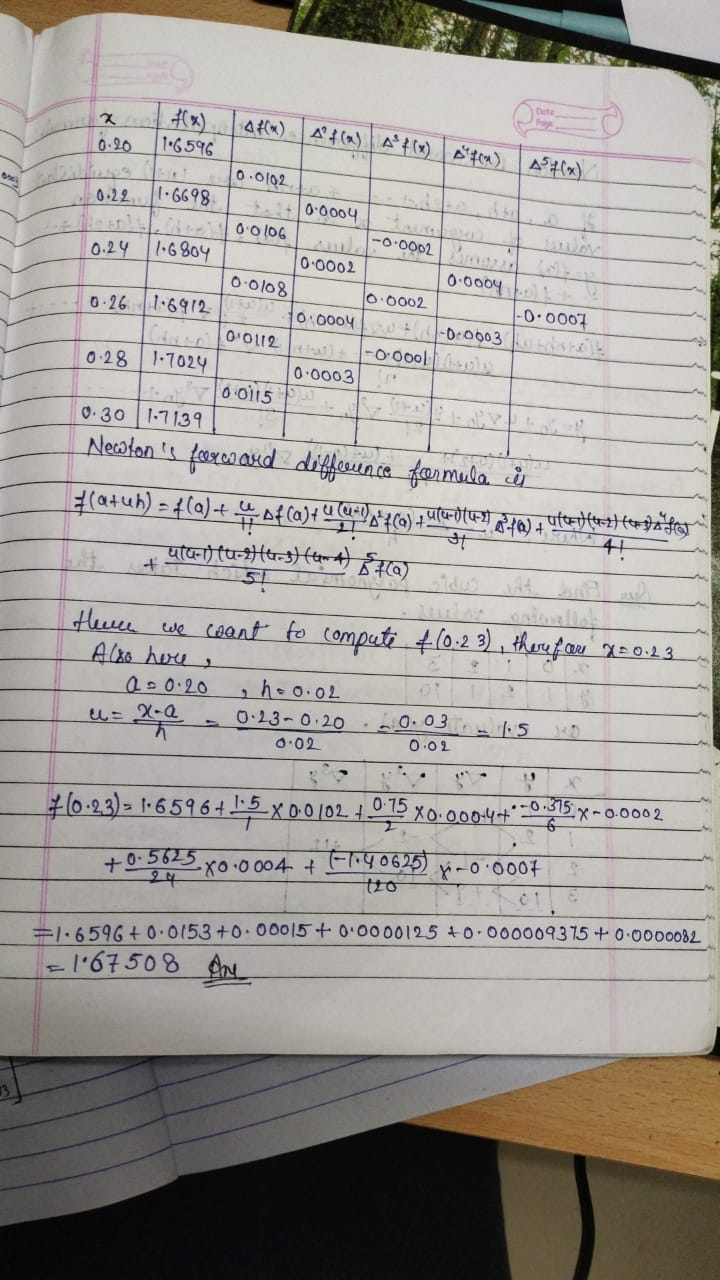 Date
Page
x f(x) Δf(x) Δ²f(x) Δ³f(x) Δ⁴f(x) Δ⁵f(x)
0.20 1.6596
0.0102
0.22 1.6698 0.0004
0.0106 -0.0002
0.24 1.6804 0.0002 0.0004
0.0108 0.0002 -0.0007
0.26 1.6912 0.0004 -0.0003
0.0112 -0.0001
0.28 1.7024 0.0003
0.0115
0.30 1.7139
Newton's forward difference formula is
f(a+uh) = f(a) + u/1! Δf(a) + u(u-1)/2! Δ²f(a) + u(u-1)(u-2)/3! Δ³f(a) + u(u-1)(u-2)(u-3)/4! Δ⁴f(a)
+ u(u-1)(u-2)(u-3)(u-4)/5! Δ⁵f(a)
Here we want to compute f(0.23), therefore x=0.23
Also here,
a=0.20 , h=0.02
u = x-a/h = 0.23-0.20/0.02 = 0.03/0.02 = 1.5
f(0.23) = 1.6596 + 1.5/1 × 0.0102 + 0.75/2 × 0.0004 + -0.375/6 × -0.0002
+ 0.5625/24 × 0.0004 + (-1.40625)/120 × -0.0007
= 1.6596 + 0.0153 + 0.00015 + 0.0000125 + 0.000009375 + 0.0000082
= 1.67508 Ans